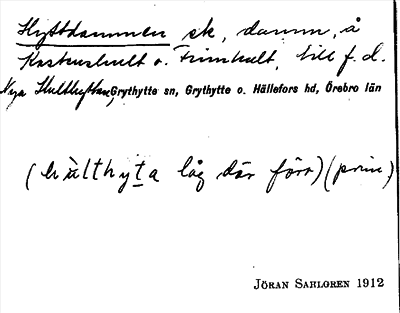 Hyttdammen sk, damm, å
Kastenshult o. Finnhult, till f.d.
Nya Hulthyttan, Grythytte sn, Grythytte o. Hällefors hd, Örebro län
(hùlthyta låg där förr) (prim.)
JÖRAN SAHLGREN 1912